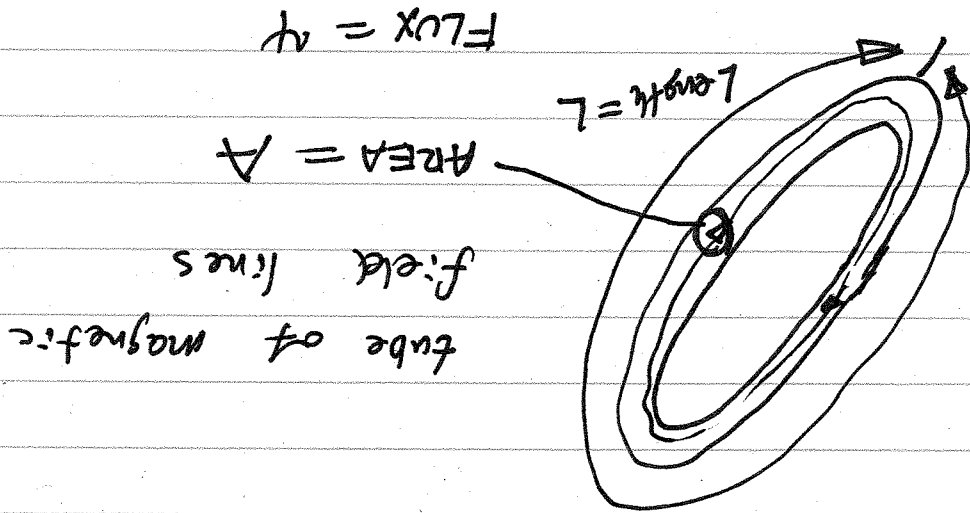 tube of magnetic
field lines
AREA = A
Length = L
FLUX = ψ